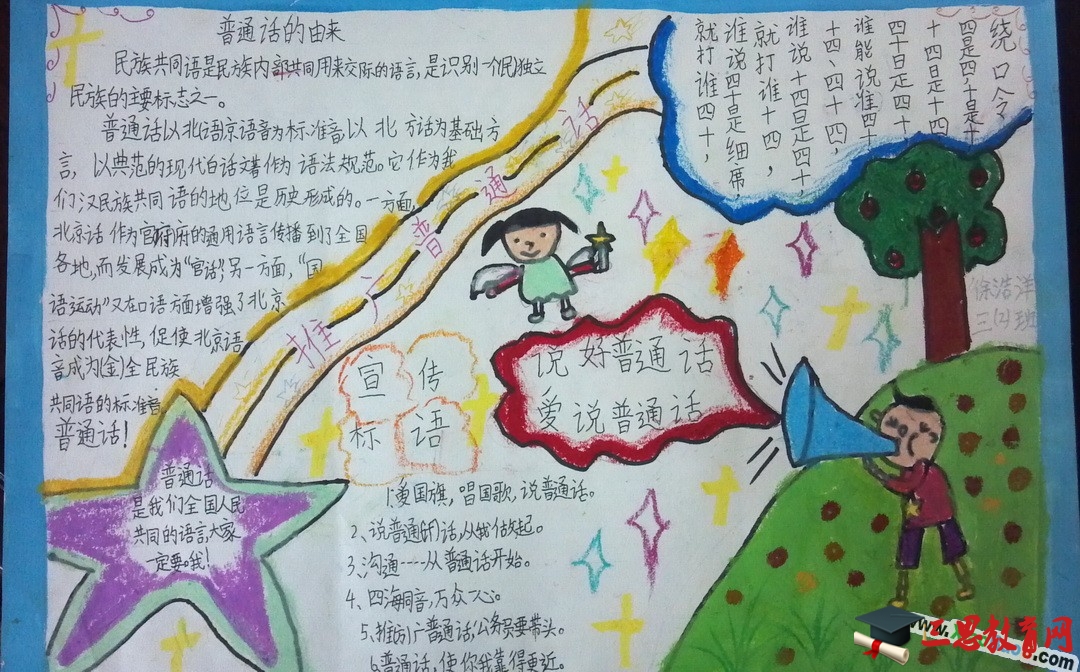 普通话的由来
民族共同语是民族内部共同用来交际的语言,是识别一个民独立
民族的主要标志之一。
普通话以北语京语音为标准音以北方话为基础方
言,以典范的现代白话文著作为语法规范。它作为我
们汉民族共同语的地位是历史形成的。一方面,
北京话作为官府的通用语言传播到了全国
各地,而发展成为“官话”,另一方面,“国
语运动”又在口语方面增强了北京
话的代表性,促使北京语
音成为(金)全民族
共同语的标准音
普通话!
推广普通话
绕口令
四是四十是十
十四是十四
四十是四十
谁能说准四十
十四、四十四,
谁说十四是四十,
就打谁十四,
谁说四十是细席,
就打谁四十,
徐浩洋
三(2)班
说好普通话
爱说普通话
宣传
标语
1.爱国旗,唱国歌,说普通话。
2、说普通好话,从我做起。
3、沟通----从普通话开始。
4、四海同音,万众一心。
5、推广普通话,公务员要带头。
6普通话,使你我靠得更近。
普通话
是我们全国人民
共同的语言,大家
一定要
三思教育网
www.
.com